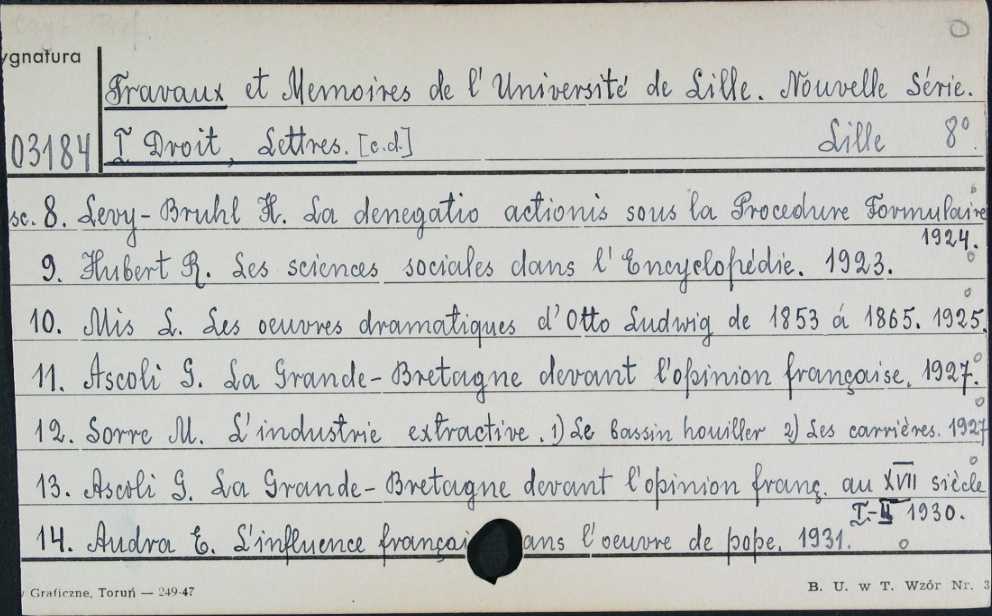 ygnatura
Travaux et Memoires de l' Université de Lille. Nouvelle Série.
03184 I Droit, Lettres. [c.d.] Lille 8°.
sc. 8. Levy-Bruhl H. La denegatio actionis sous la Procedure Formulaire
1924.
9. Hubert R. Les sciences sociales dans l'Encyclopédie. 1923.
10. Mis L. Les oeuvres dramatiques d'Otto Ludwig de 1853 á 1865. 1925.
11. Ascoli G. La Grande-Bretagne devant l'opinion française. 1927.
12. Sorre M. L'industrie extractive. 1) Le bassin houiller 2) Les carrières. 1927
13. Ascoli G. La Grande-Bretagne devant l'opinion franç. au XVII siècle
I-II 1930.
14. Audra E. L'influence françai ans l'oeuvre de pope. 1931.
Graficzne, Toruń — 249-47 B. U. w T. Wzór Nr. 3